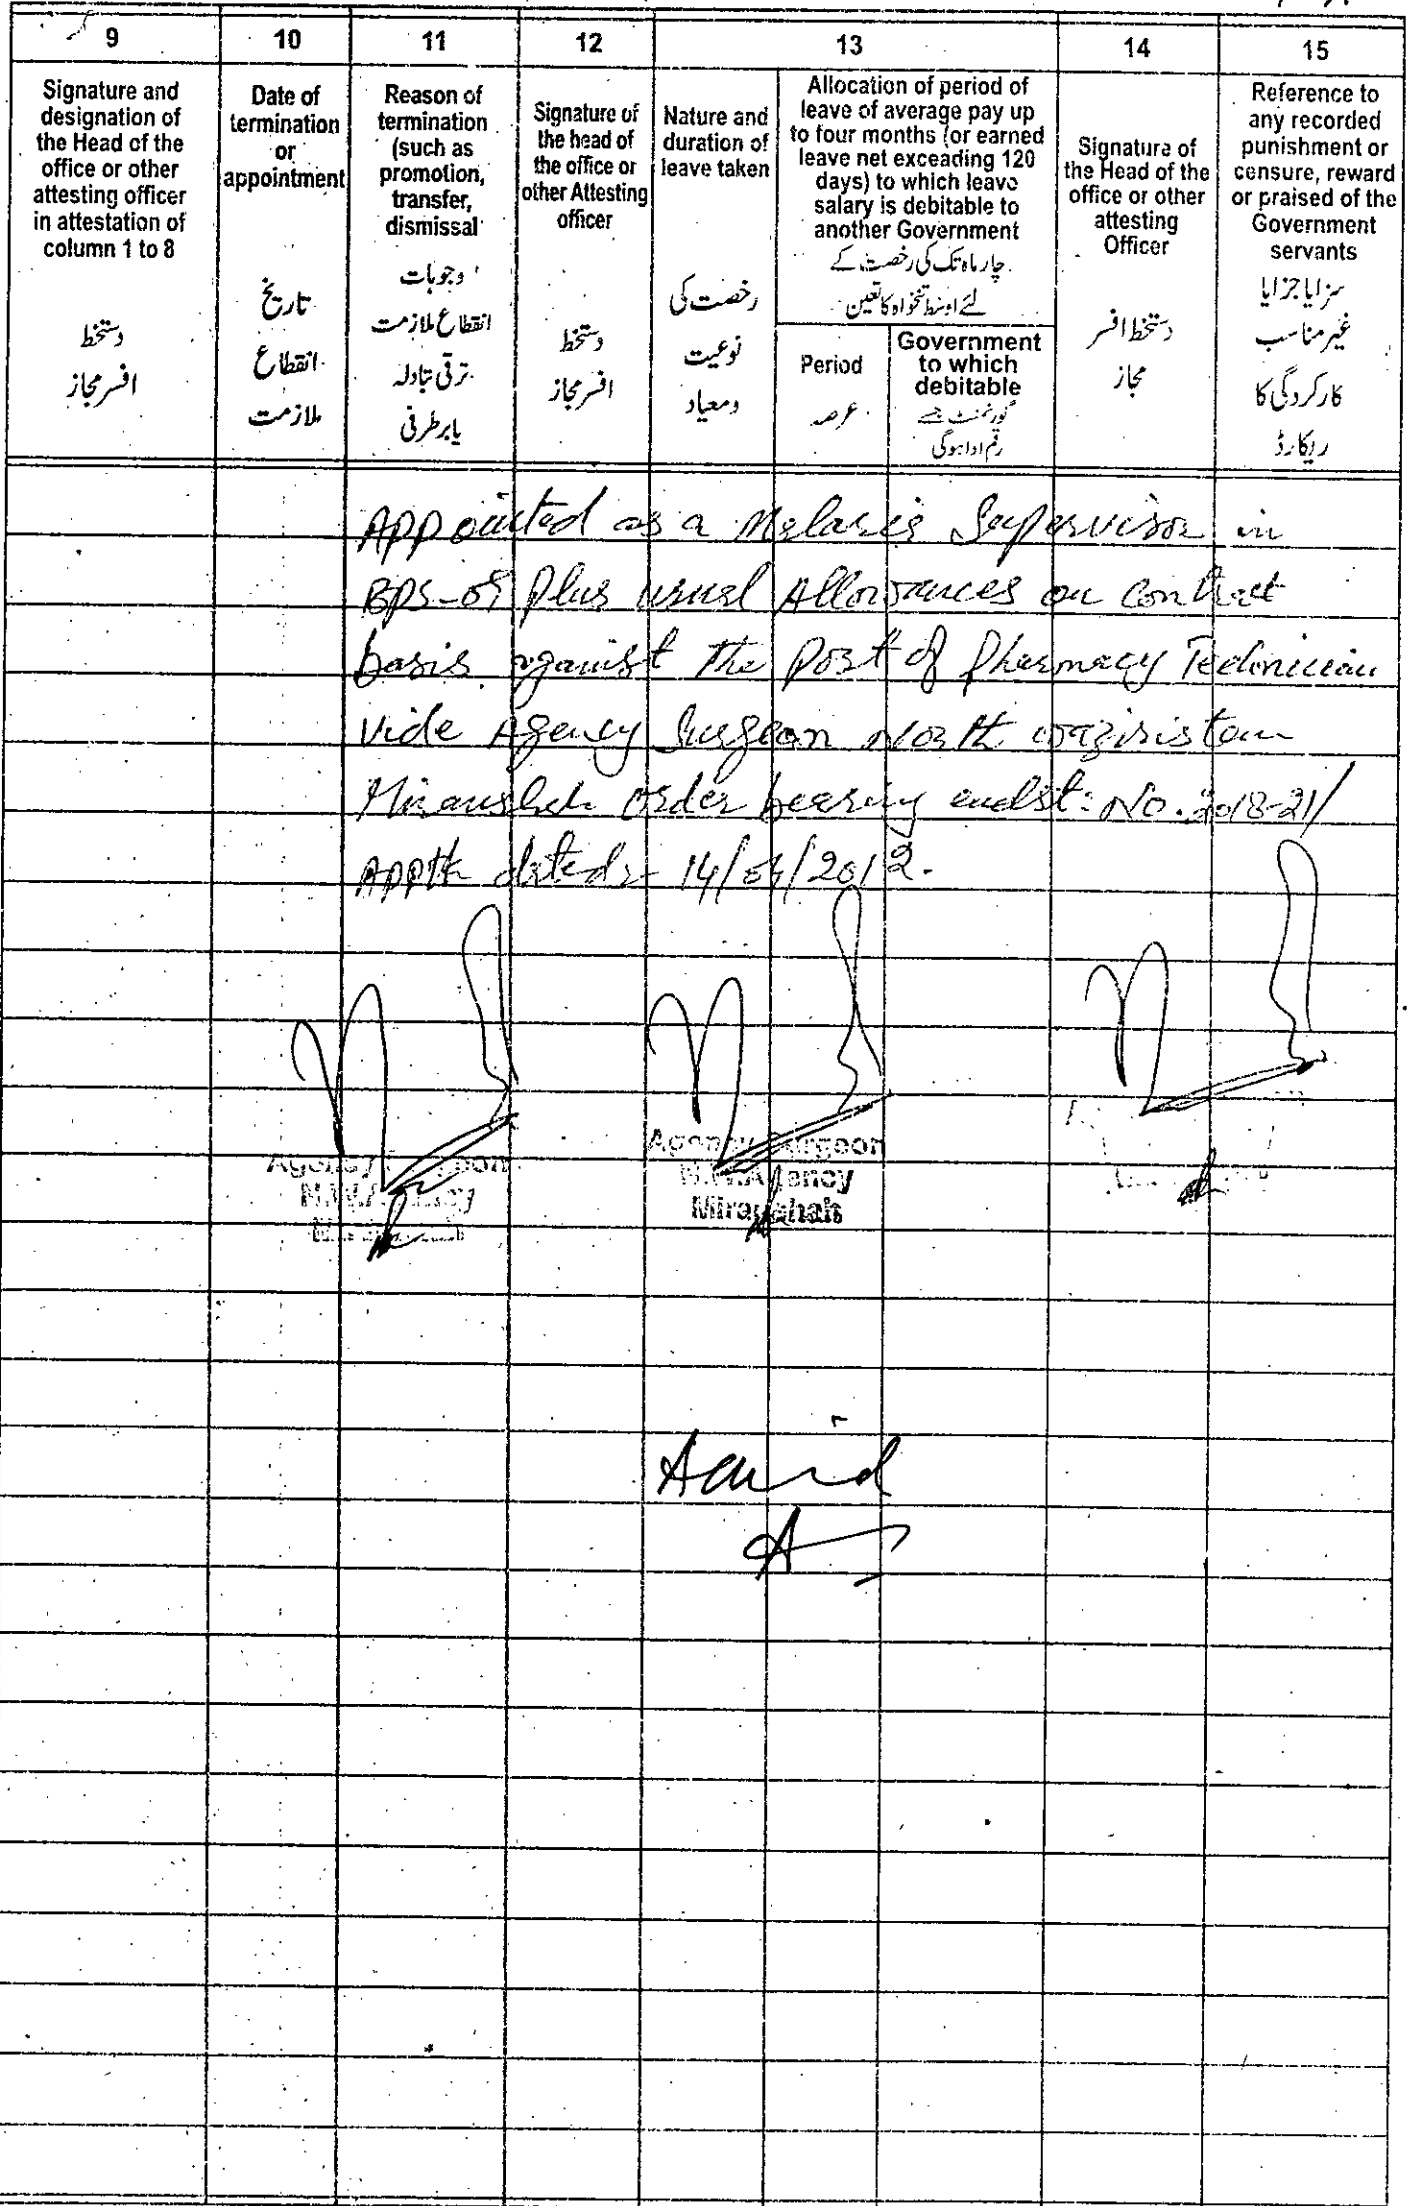 9
10
11
12
13
14
15
Signature and
designation of
the Head of the
office or other
attesting officer
in attestation of
column 1 to 8
دستخط
افسر مجاز
Date of
termination
or
appointment
تاریخ
انقطاع
ملازمت
Reason of
termination
(such as
promotion,
transfer,
dismissal
وجوہات
انقطاع ملازمت
ترقی تبادلہ
یا برطرفی
Signature of
the head of
the office or
other Attesting
officer
دستخط
افسر مجاز
Nature and
duration of
leave taken
رخصت کی
نوعیت
ومعیاد
Allocation of period of
leave of average pay up
to four months (or earned
leave net exceading 120
days) to which leave
salary is debitable to
another Government
چار ماہ تک کی رخصت کے
لئے اوسط تنخواہ کا تعین
Period
عرصہ
Government
to which
debitable
گورنمنٹ جسے
رقم ادا ہوگی
Signature of
the Head of the
office or other
attesting
Officer
دستخط افسر
مجاز
Reference to
any recorded
punishment or
censure, reward
or praised of the
Government
servants
سزا یا جزا یا
غیر مناسب
کارکردگی کا
ریکارڈ
Appointed as a Malaria Supervisor in
BPS- plus usual Allowances on contract
basis against the post of Pharmacy Technician
vide Agency Surgeon North waziristan
Miranshah order bearing endst: No. 2018-21/
Apptt dated:- 14/ /2012.
Agency Surgeon
N.W.Agency
Miranshah
Agency Surgeon
N.W.Agency
Miranshah